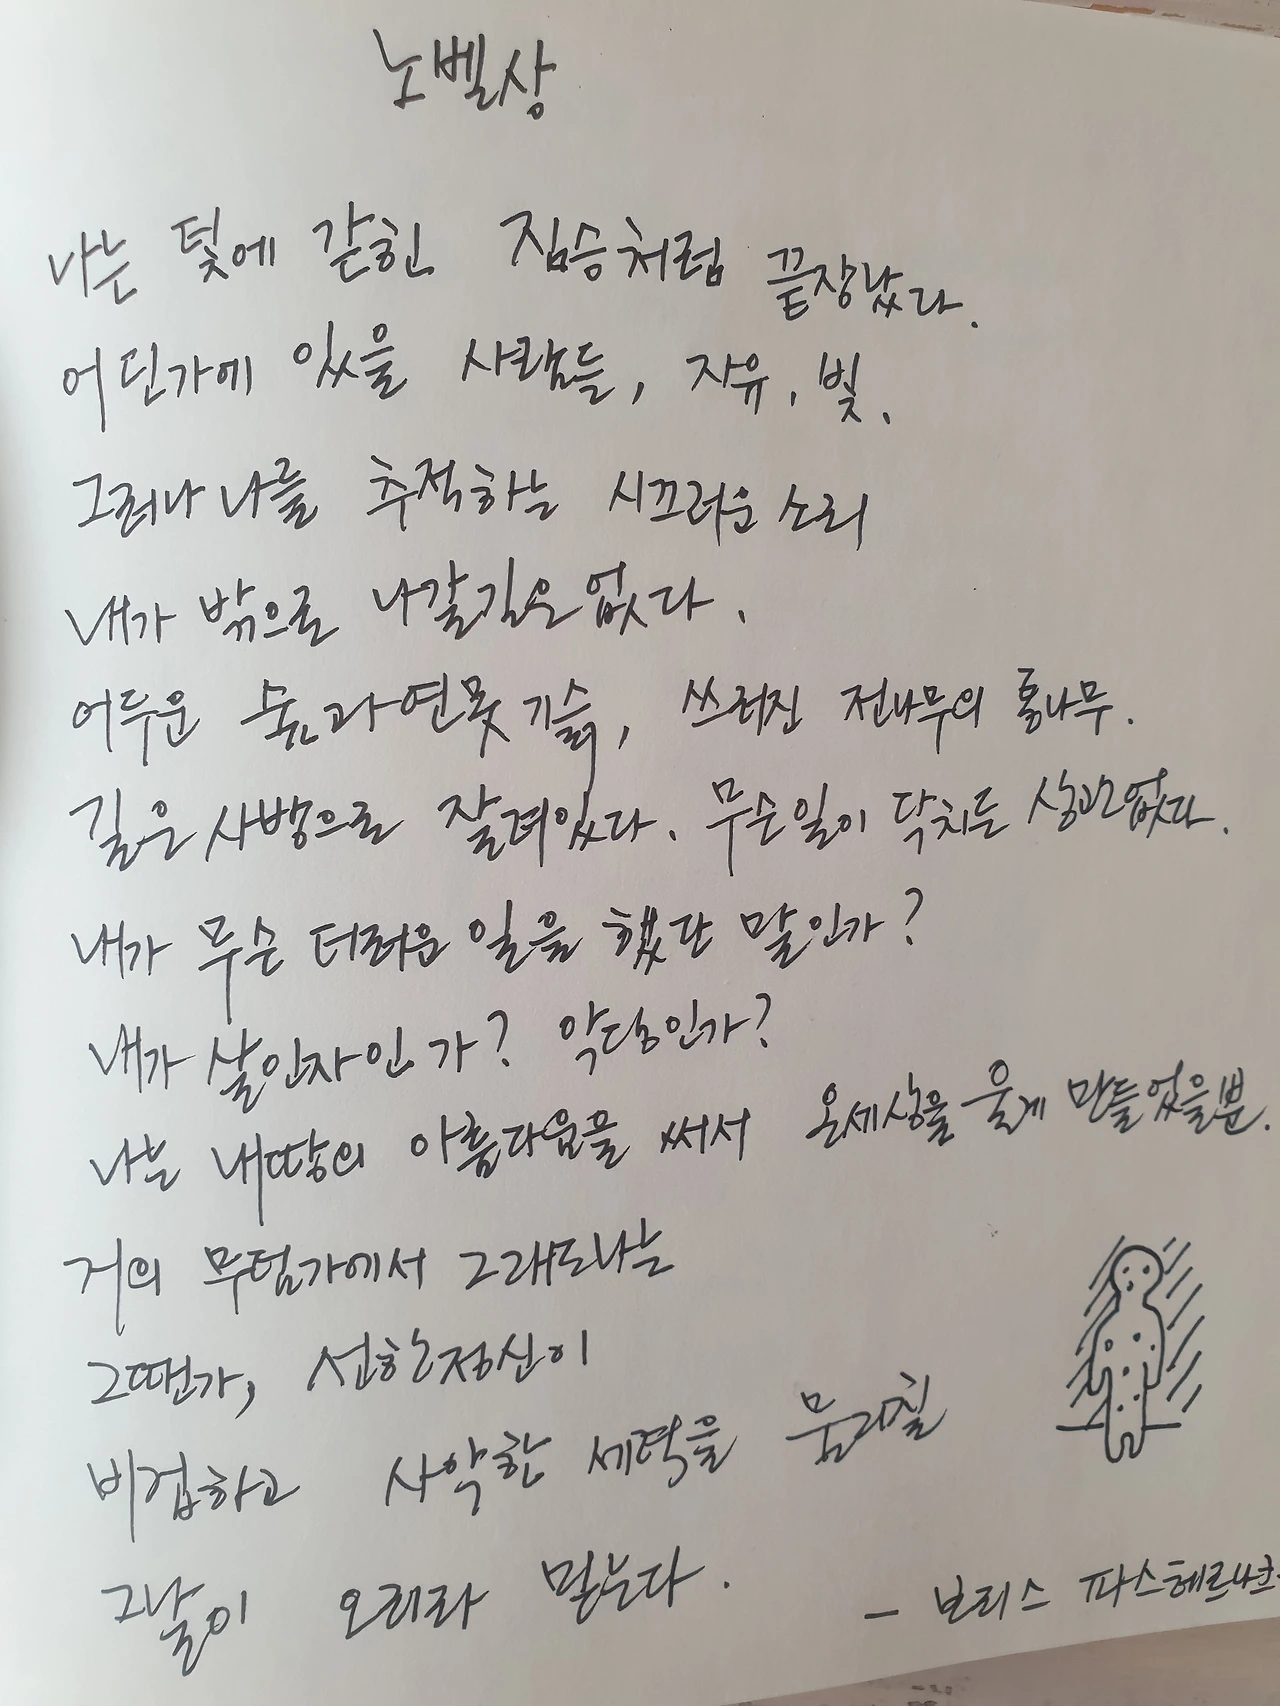 노벨상
나는 덫에 갇힌 짐승처럼 끝장났다.
어딘가에 있을 사람들, 자유, 빛.
그러나 나를 추적하는 시끄러운 소리
내가 밖으로 나갈길은 없다.
어두운 숲과 연못 기슭, 쓰러진 전나무의 통나무.
길은 사방으로 잘려있다. 무슨일이 닥치든 상관없다.
내가 무슨 더러운 일을 했단 말인가?
내가 살인자인가? 악당인가?
나는 내땅의 아름다움을 써서 온세상을 울게 만들었을뿐.
거의 무덤가에서 그래도나는
그땐가, 선한정신이
비겁하고 사악한 세력을 물리칠
그날이 오리라 믿는다.
- 보리스 파스헤르나크-